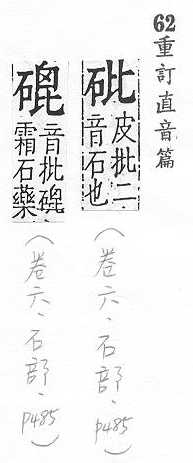 62重訂直音篇
砒
皮批二
音石也
（卷六、石部、p485）
磇
音批磇
霜石藥
（卷六、石部、p485）